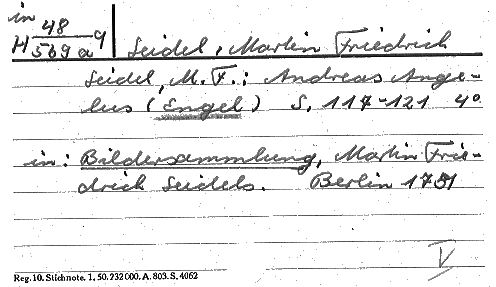 in
H 48/569a q Seidel, Martin Friedrich
Seidel, M. F.: Andreas Ange-
lus (Engel) S. 117-121 4°.
in: Bildersammlung, Martin Frie-
drich Seidels. Berlin 1751
V
Reg. 10. Stichnote. 1. 50. 232 000. A. 803. S. 4062